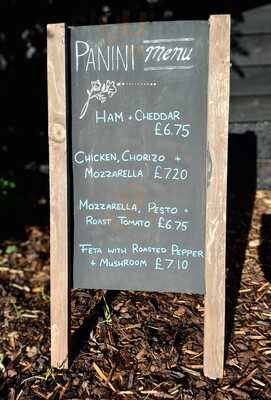 PANINI MENU
HAM + CHEDDAR
£6.75
CHICKEN, CHORIZO +
MOZZARELLA £7.20
MOZZARELLA, PESTO +
ROAST TOMATO £6.75
FETA WITH ROASTED PEPPER
+ MUSHROOM £7.10